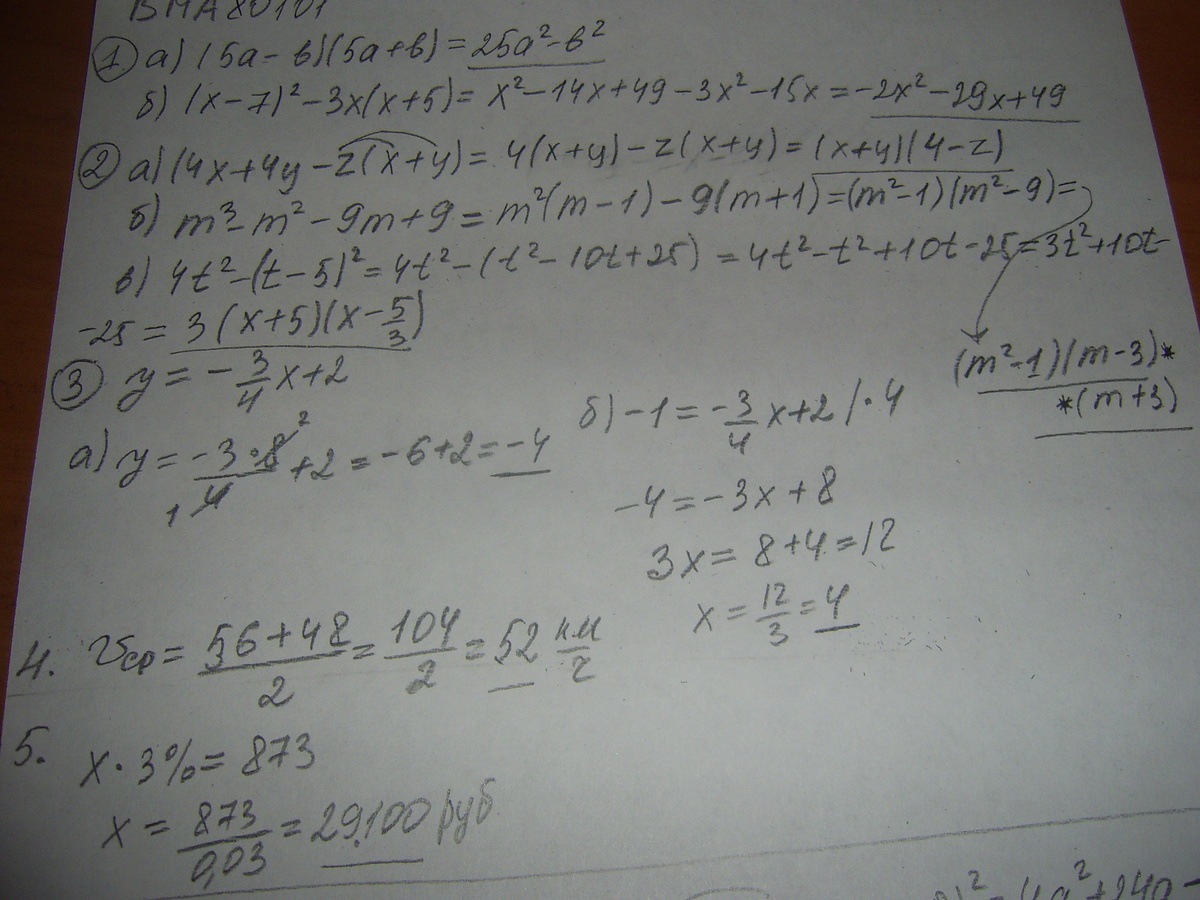 ВМА80101
① а) (5а-в)(5а+в) = 25а²-в²
б) (x-7)²-3x(x+5) = x²-14x+49-3x²-15x = -2x²-29x+49
② а) (4x+4y-z(x+y) = 4(x+y)-z(x+y) = (x+y)(4-z)
б) m³-m²-9m+9 = m²(m-1)-9(m+1) = (m²-1)(m²-9) =
в) 4t²-(t-5)² = 4t²-(t²-10t+25) = 4t²-t²+10t-25 = 3t²+10t-
-25 = 3(x+5)(x-5/3)
(m²-1)(m-3)*
*(m+3)
③ y = -3/4 x+2
а) y = -3·8/4 +2 = -6+2 = -4
2
1
б) -1 = -3/4 x+2 /·4
-4 = -3x+8
3x = 8+4 = 12
x = 12/3 = 4
4. Vср = 56+48/2 = 104/2 = 52 км/г
5. x · 3% = 873
x = 873/0,03 = 29.100 руб